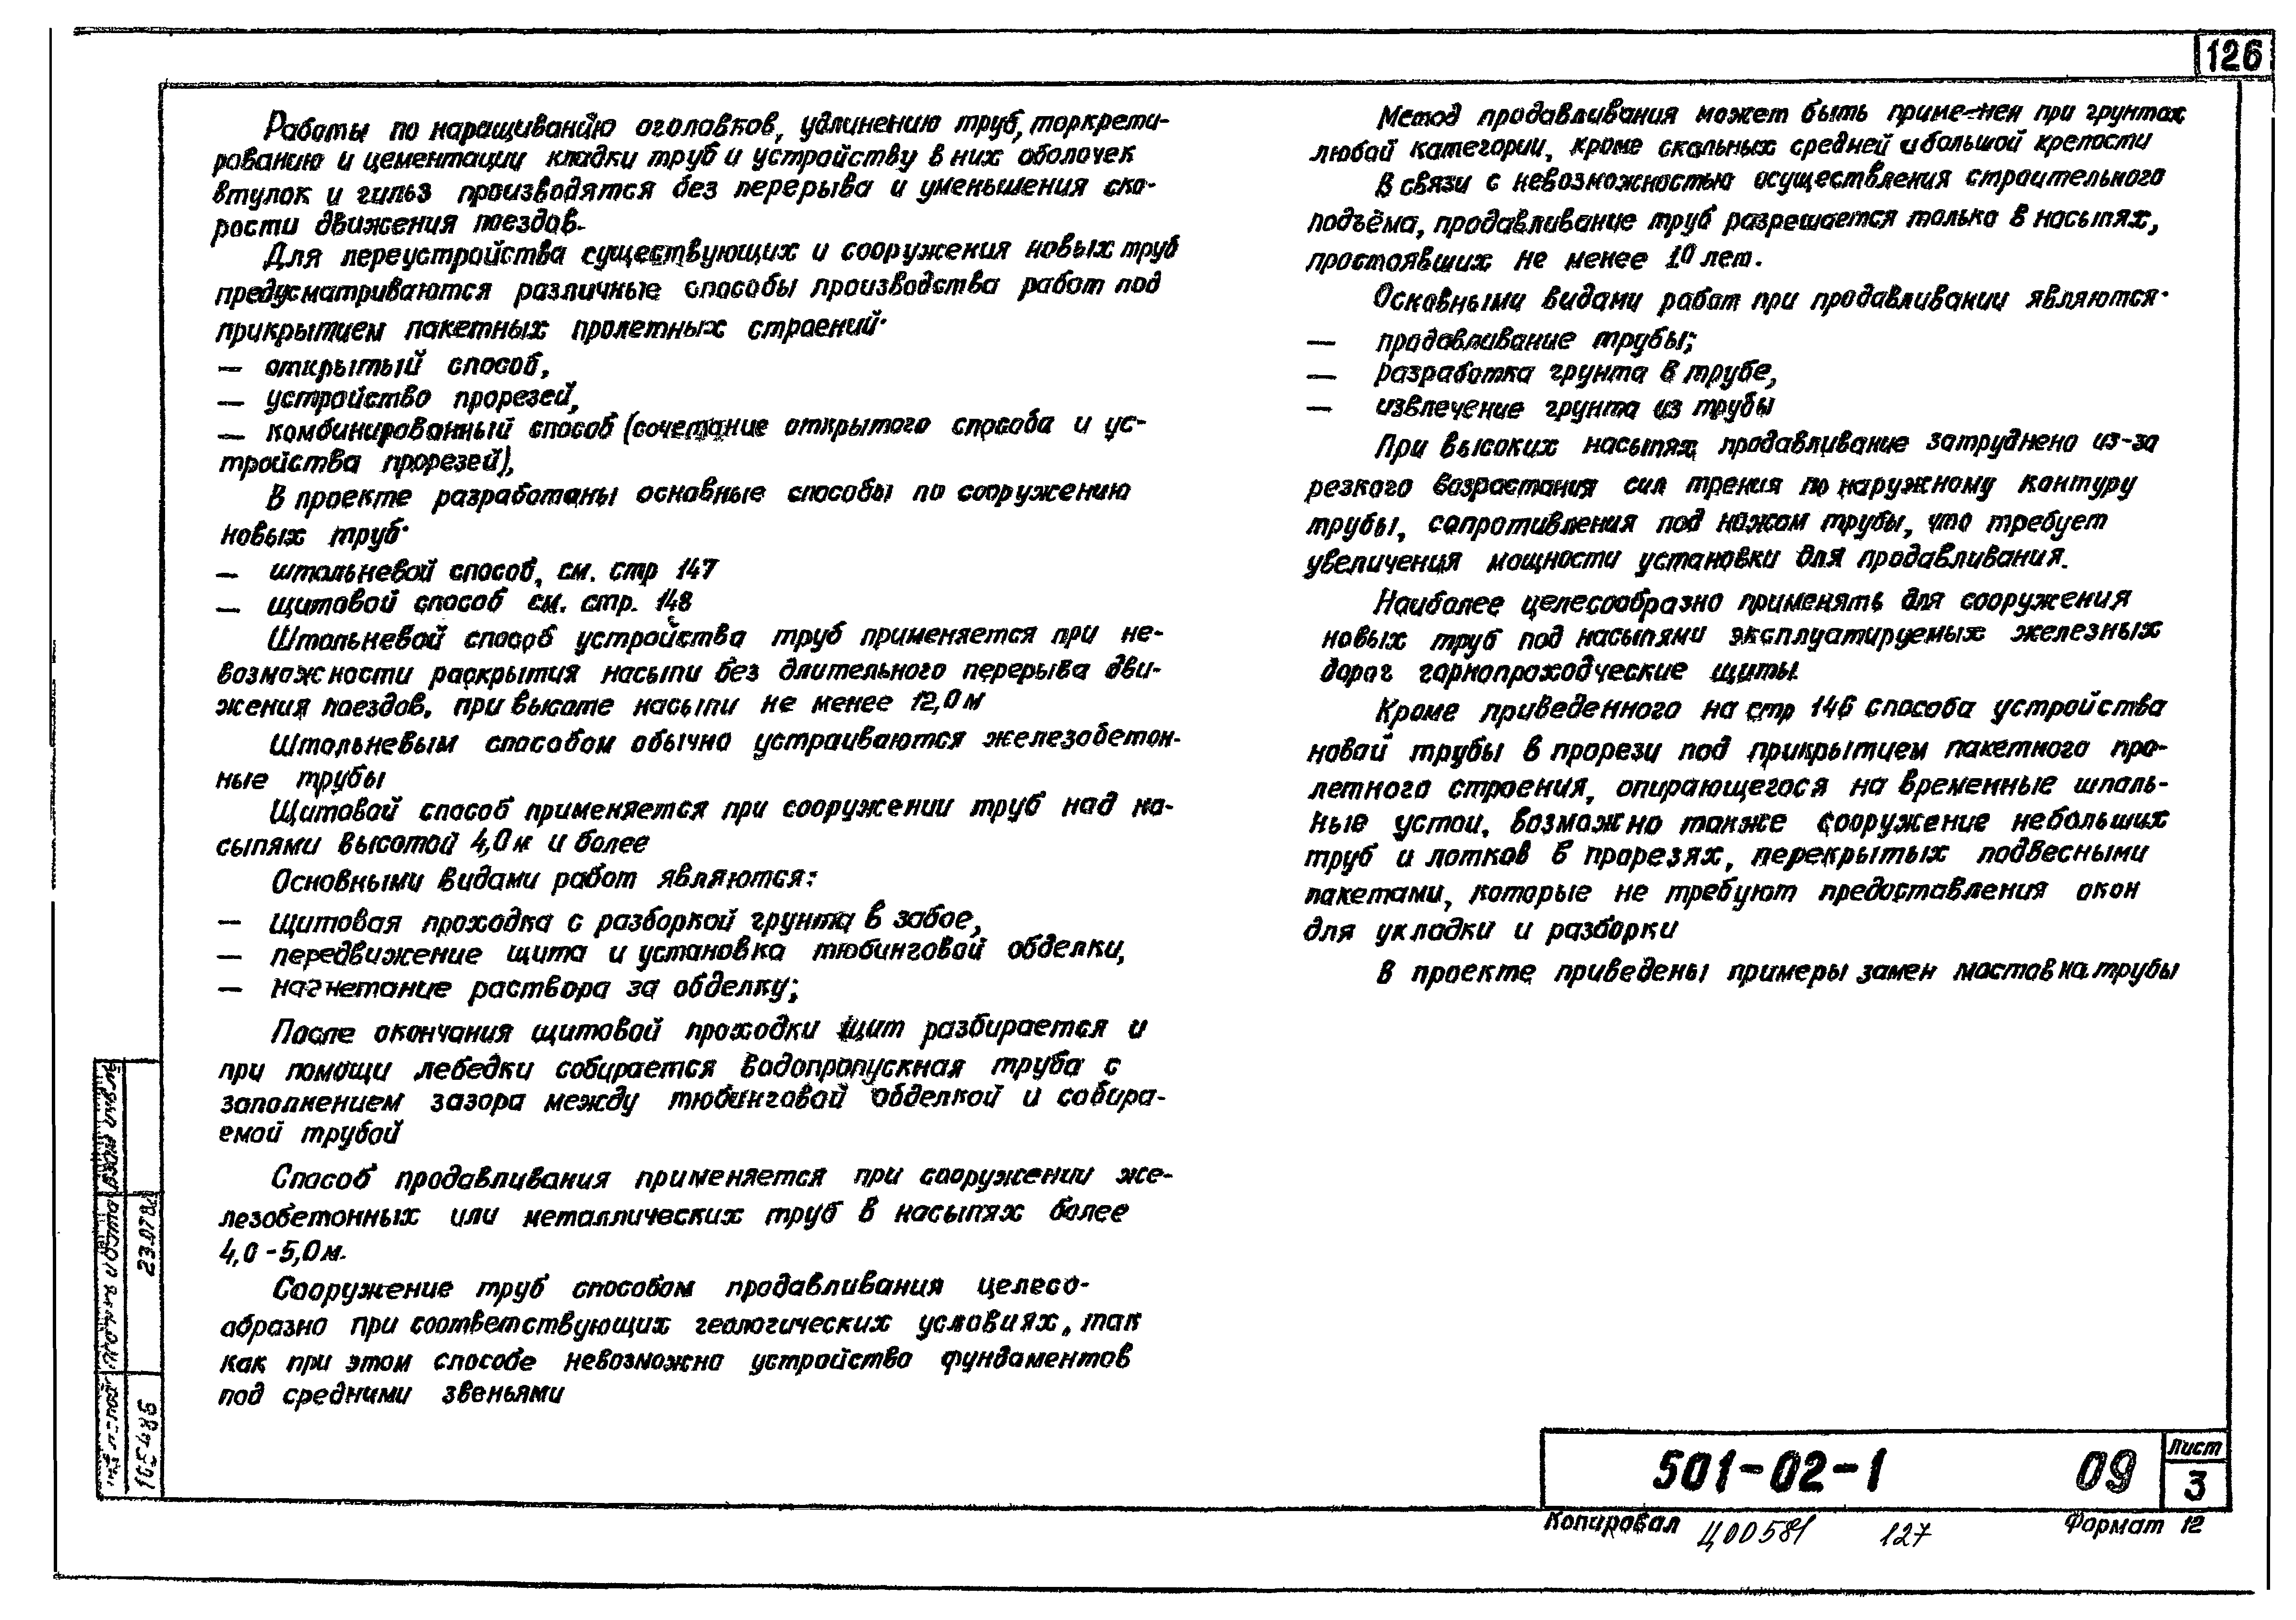 126
Работы по наращиванию оголовков, удлинению труб, торкрети-
рованию и цементации кладки труб и устройству в них оболочек
втулок и гильз производятся без перерыва и уменьшения ско-
рости движения поездов.
Для переустройства существующих и сооружения новых труб
предусматриваются различные способы производства работ под
прикрытием пакетных пролетных строений·
— открытый способ,
— устройство прорезей,
— комбинированный способ (сочетание открытого способа и ус-
тройства прорезей),
В проекте разработаны основные способы по сооружению
новых труб·
— штольневой способ, см. стр 147
— щитовой способ см. стр. 148
Штольневой способ устройства труб применяется при не-
возможности раскрытия насыпи без длительного перерыва дви-
жения поездов, при высоте насыпи не менее 12,0 м
Штольневым способом обычно устраиваются железобетон-
ные трубы
Щитовой способ применяется при сооружении труб над на-
сыпями высотой 4,0 м и более
Основными видами работ являются:
— щитовая проходка с разборкой грунта в забое,
— передвижение щита и установка тюбинговой обделки,
— нагнетание раствора за обделку;
После окончания щитовой проходки щит разбирается и
при помощи лебедки собирается водопропускная труба с
заполнением зазора между тюбинговой обделкой и собира-
емой трубой
Способ продавливания применяется при сооружении же-
лезобетонных или металлических труб в насыпях более
4,0-5,0 м.
Сооружение труб способом продавливания целесо-
образно при соответствующих геологических условиях, так
как при этом способе невозможно устройство фундаментов
под средними звеньями
Метод продавливания может быть применен при грунтах
любой категории, кроме скальных средней и большой крепости
В связи с невозможностью осуществления строительного
подъёма, продавливание труб разрешается только в насыпях,
простоявших не менее 10 лет.
Основными видами работ при продавливании являются·
— продавливание трубы;
— разработка грунта в трубе,
— извлечение грунта из трубы
При высоких насыпях продавливание затруднено из-за
резкого возрастания сил трения по наружному контуру
трубы, сопротивления под ножом трубы, что требует
увеличения мощности установки для продавливания.
Наиболее целесообразно применять для сооружения
новых труб под насыпями эксплуатируемых железных
дорог горнопроходческие щиты.
Кроме приведенного на стр 146 способа устройства
новой трубы в прорези под прикрытием пакетного про-
летного строения, опирающегося на временные шпаль-
ные устои, возможно также сооружение небольших
труб и лотков в прорезях, перекрытых подвесными
пакетами, которые не требуют предоставления окон
для укладки и разборки
В проекте приведены примеры замен мостов на трубы
23.07.82
105486
501-02-1 09
Лист
3
Копировал Ц00581 127 Формат 12